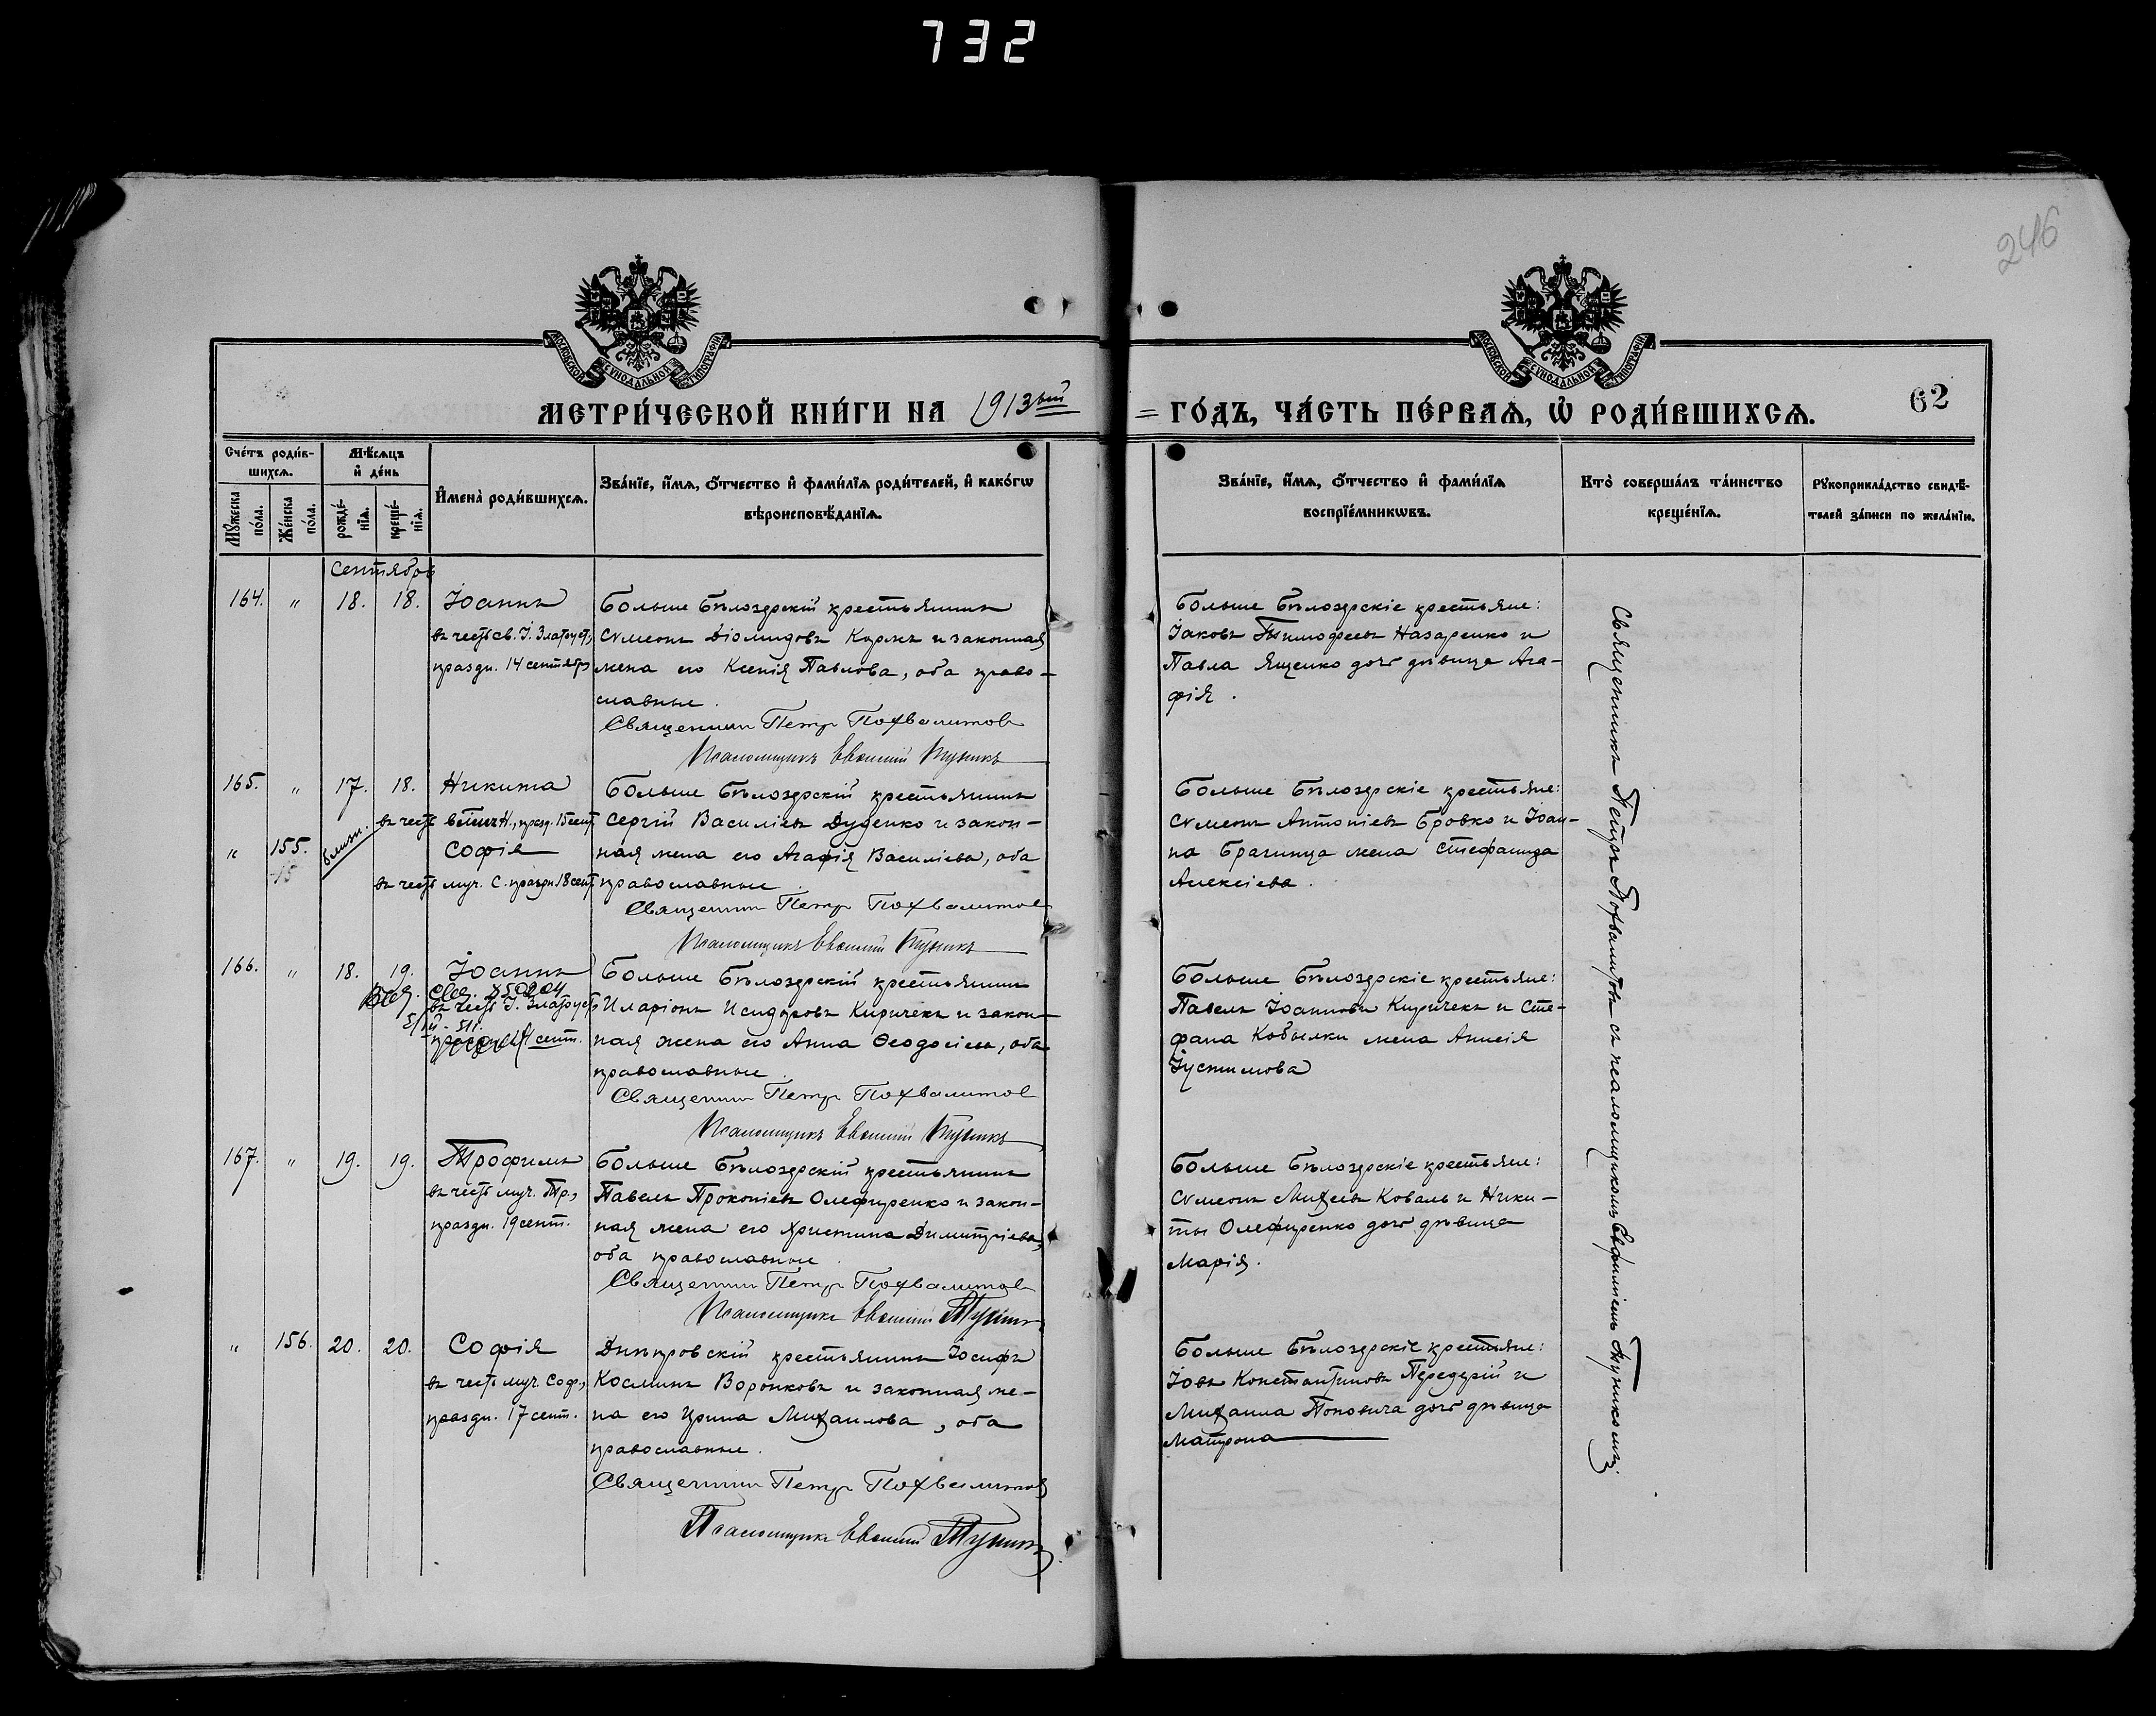 732
246
МОСКОВСКОЙ СУНОДАЛЬНОЙ ТИПОГРАФІИ
МОСКОВСКОЙ СУНОДАЛЬНОЙ ТИПОГРАФІИ
МЕТРИ́ЧЕСКОЙ КНИ́ГИ НА 1913ый
= ГО́ДЪ, ЧА́СТЬ ПЕ́РВАѦ, Ѡ҆ РОДИ́ВШИХСѦ.
62
Сче́тъ роди́в-
шихсѧ.
Мꙋ́жеска по́ла.
Же́нска по́ла.
Мѣ́сѧцъ
и҆ де́нь
рожде́-
нїѧ.
креще́-
нїѧ.
И҆мена̀ роди́вшихсѧ.
Зва́нїе, и҆́мѧ, ѻ҆́тчество и҆ фами́лїѧ роди́телей, и҆ како́гѡ
вѣроисповѣ́данїѧ.
Зва́нїе, и҆́мѧ, ѻ҆́тчество и҆ фами́лїѧ
воспрїе́мникѡвъ.
Кто̀ соверша́лъ та́инство
креще́нїѧ.
Рꙋкоприкла́дство свидѣ́-
телей за́писи по жела́нїю.
Сентябрь
164. " 18. 18. Іоаннъ
въ честь св. І. Златоуст.,
праздн. 14 сентября
Больше Бѣлозерскій крестьянинъ
Сѵмеонъ Діомидовъ Коржъ и законная
жена его Ксенія Павлова, оба право-
славные.
Священникъ Петръ Похвалитовъ
Псаломщикъ Евѳимій Тупикъ
Больше Бѣлозерскіе крестьяне:
Іаковъ Тимофеевъ Назаренко и
Павла Ященко дочь дѣвица Ага-
фія.
165. " 17. 18. Никита
въ честь великом. Н., празд. 15 сент.
близн.
" 155. Софія
15
въ честь муч. С. праздн. 18 сент.
Больше Бѣлозерскій крестьянинъ
Сергій Василіевъ Дуденко и закон-
ная жена его Агафія Василіева, оба
православные.
Священникъ Петръ Похвалитовъ
Псаломщикъ Евѳимій Тупикъ
Больше Бѣлозерскіе крестьяне:
Сѵмеонъ Антоніевъ Бровко и Іоан-
на Брагинца жена Стефанида
Алексіева.
166. " 18. 19. Іоаннъ
въ честь І. Златоуст.
14 сент.
Больше Бѣлозерскій крестьянинъ
Иларіонъ Исидоровъ Киричекъ и закон-
ная жена его Анна Ѳеодосіева, оба
православные.
Священникъ Петръ Похвалитовъ
Псаломщикъ Евѳимій Тупикъ
Больше Бѣлозерскіе крестьяне:
Павелъ Іоанновъ Киричекъ и Сте-
фана Кобылки жена Анисія
Іустинова
167. " 19. 19. Трофимъ
въ честь муч. Тр.,
праздн. 19 сент.
Больше Бѣлозерскій крестьянинъ
Павелъ Прокопіевъ Олефиренко и закон-
ная жена его Христина Димитріева,
оба православные.
Священникъ Петръ Похвалитовъ
Псаломщикъ Евѳимій Тупикъ
Больше Бѣлозерскіе крестьяне:
Сѵмеонъ Михеевъ Коваль и Ники-
ты Олефиренко дочь дѣвица
Марія.
" 156. 20. 20. Софія
въ честь муч. Соф.,
праздн. 17 сент.
Днѣпровскій крестьянинъ Іосифъ
Косминъ Воронковъ и законная же-
на его Ирина Михаилова, оба
православные.
Священникъ Петръ Похвалитовъ
Псаломщикъ Евѳимій Тупикъ
Больше Бѣлозерскіе крестьяне:
Іовъ Константиновъ Передерій и
Михаила Поповича дочь дѣвица
Матрона
Священникъ Петръ Похвалитовъ съ псаломщикомъ Евфиміемъ Тупикомъ.